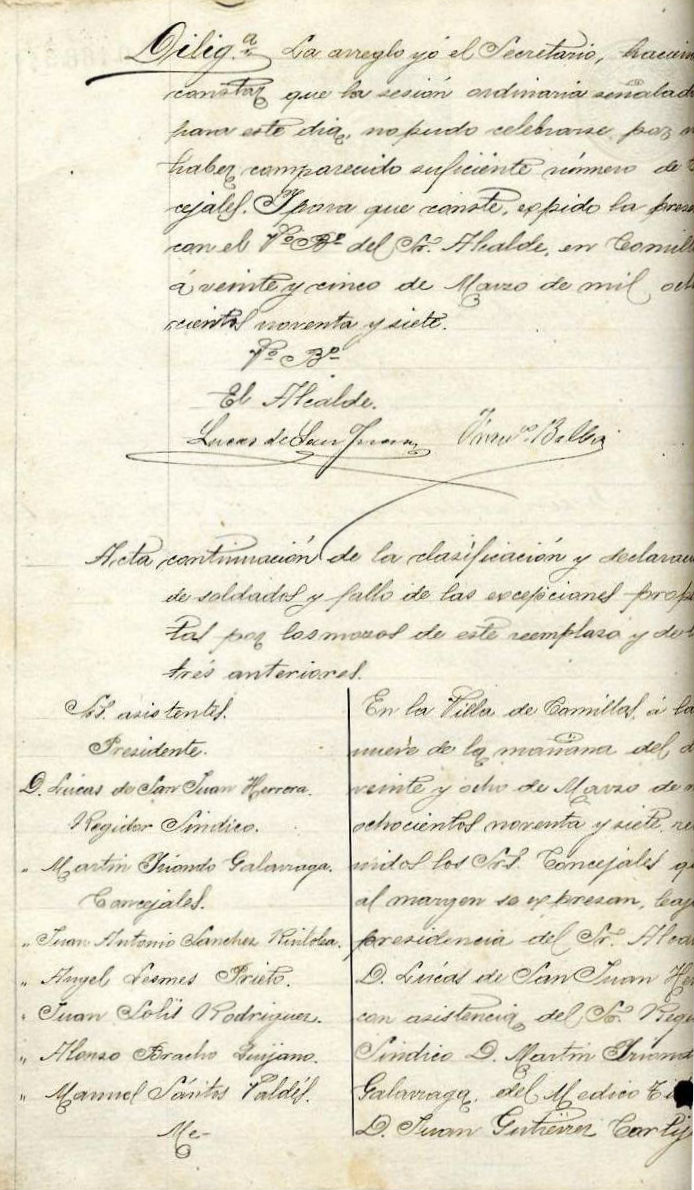 Dilig.ª La arreglo yó el Secretario, haciend
constar que la sesión ordinaria señalada
para este dia, no pudo celebrarse por n
haber comparecido suficiente número de C
cejales. Y para que conste, expido la prese
con el Vº Bº del Sr. Alcalde, en Comilla
á veinte y cinco de Marzo de mil och
cientos noventa y siete.
Vº Bº
El Alcalde.
Lucas de San Juan
Acta continuación de la clasificación y declarac
de soldados y fallo de las excepciones propu
tas por los mozos de este reemplazo y de l
trés anteriores.
Srs. asistentes.
Presidente.
D. Lucas de San Juan Herrera.
Regidor Sindico.
" Martin Iriondo Galarraga.
Concejales.
" Juan Antonio Sanchez
" Angel Lesmes Prieto.
" Juan Solis Rodriguez.
" Alonso Bracho Quijano.
" Manuel Sántos Valdés.
Me-
En la Villa de Comillas, á la
nueve de la mañana del d
veinte y ocho de Marzo de m
ochocientos noventa y siete, reu
nidos los Srs. Concejales qu
al margen se expresan, bajo
presidencia del Sr. Alcal
D. Lucas de San Juan Her
con asistencia del Sr. Regi
Sindico D. Martin Iriond
Galarraga, del Medico Ti
D. Juan Gutiérrez Cortij